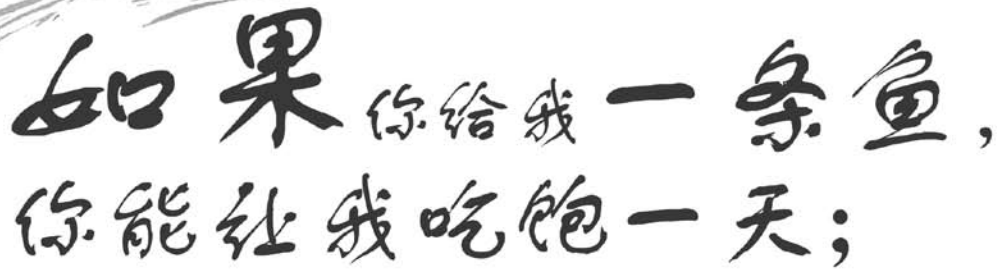 如果你给我一条鱼，
你能让我吃饱一天；